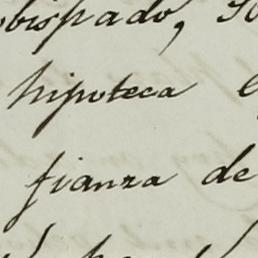 obispado,
hipoteca
fianza de